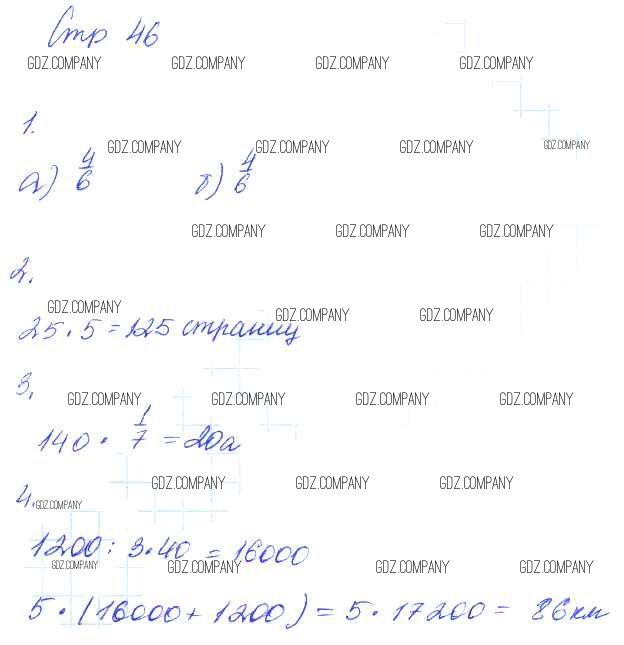 Стр 46
GDZ.COMPANY GDZ.COMPANY GDZ.COMPANY GDZ.COMPANY
1.
GDZ.COMPANY GDZ.COMPANY GDZ.COMPANY GDZ.COMPANY
а) 4/6 б) 4/6
GDZ.COMPANY GDZ.COMPANY GDZ.COMPANY
2.
GDZ.COMPANY GDZ.COMPANY GDZ.COMPANY
25 · 5 = 125 страниц
3.
GDZ.COMPANY GDZ.COMPANY GDZ.COMPANY GDZ.COMPANY
140 · 1/7 = 20а
GDZ.COMPANY GDZ.COMPANY GDZ.COMPANY
4. GDZ.COMPANY
1200 : 3 · 40 = 16000
GDZ.COMPANY GDZ.COMPANY GDZ.COMPANY GDZ.COMPANY
5 · (16000 + 1200) = 5 · 17200 = 86 км